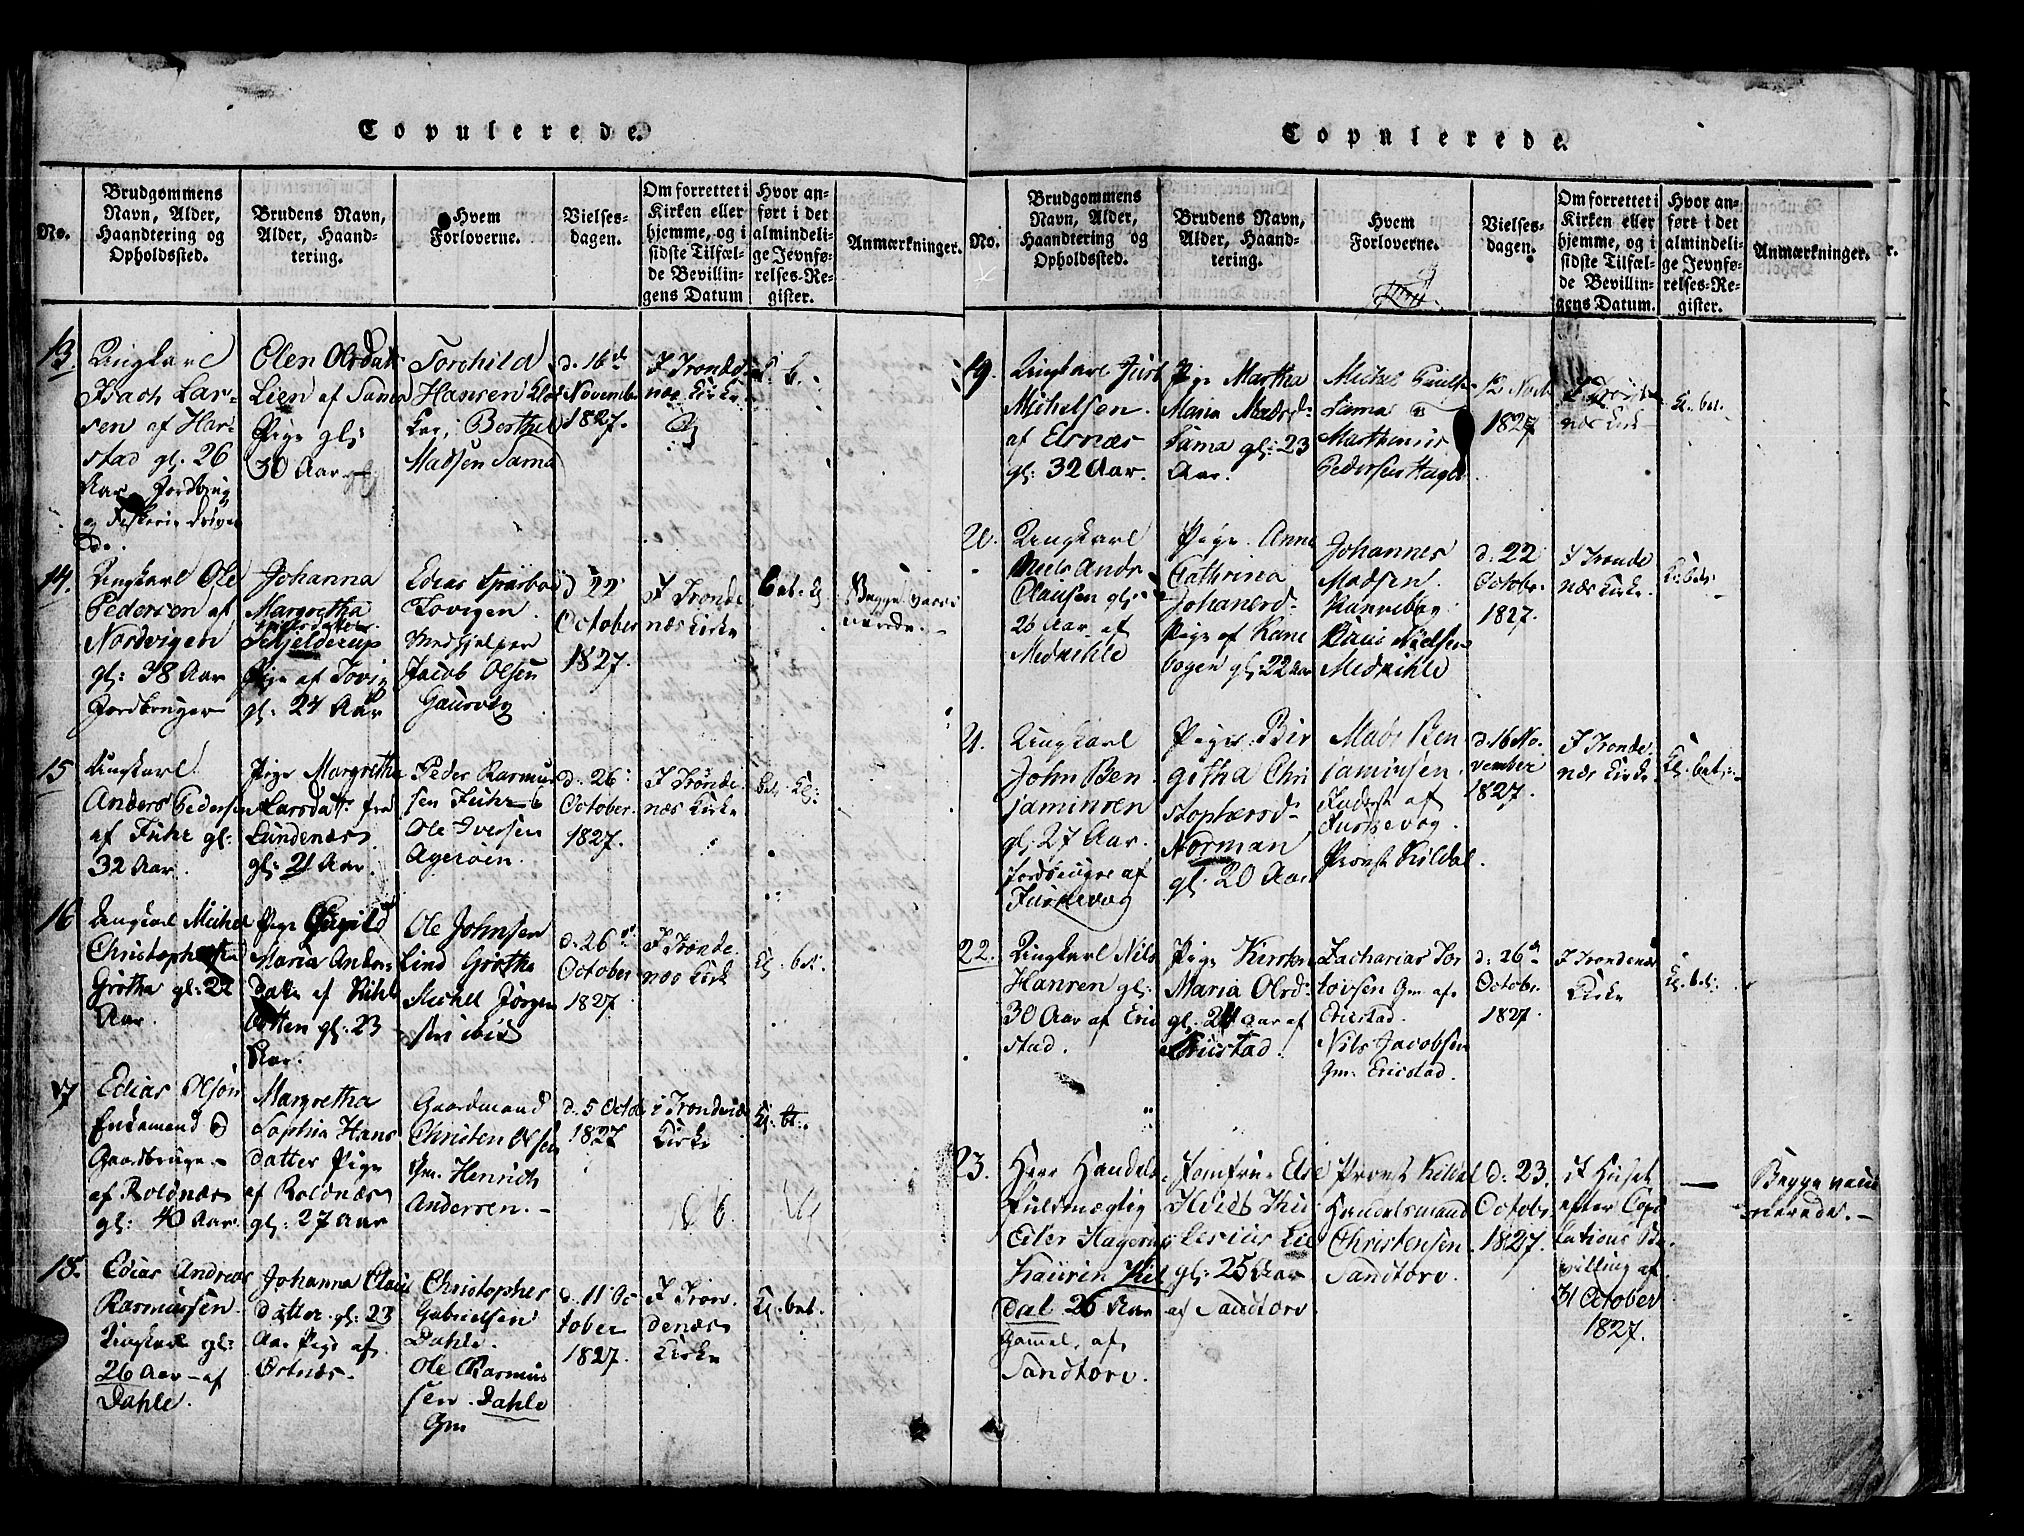 Copulerede.
No.
Brudgommens
Navn, Alder,
Haandtering og
Opholdssted.
Brudens Navn,
Alder, Haand-
tering.
Hvem
Forloverne.
Vielses-
dagen.
Om forrettet i
Kirken eller
hjemme, og i
sidste Tilfæl-
de Bevillin-
gens Datum
Hvor an-
ført i det
almindeli-
ge Jevnfø-
relses-Re-
gister.
Anmærkninger.
13.
Ungkarl
Isach Lar-
sen af Har-
stad gl. 26
Aar Jordbrug
og Fiskerie drive
de.
Olen Olsdatt
Lien af Sama
Pige gl:
30 Aar
Torchild
Hansen
Berthel
Madsen Sama
d. 16d
November
1827.
I Tronde-
næs Kirke
14.
Ungkarl Ole
Pedersen af
Nordvigen
gl: 38 Aar
Jordbruger
Johanna
Margretha
Schjelderup
Pige af Tovig
gl. 24 Aar
Edias
Tovigen
Medhjelper
Jacob Olsen
Gausvig
d 22
October
1827.
I Tronde-
næs Kirke
bet. Kl
Begge vacci-
nerede.
15
Ungkarl
Anders Pedersen
af Fuhr gl:
32 Aar.
Pige Margretha
Larsdat: fra
Lundenæs
gl: 21 Aar.
Peder Rasmus
sen Fuhr
Ole Iversen
Ageröen.
d. 26
October
1827.
I Tronde-
næs Kirke
bet. Kl:
16
Ungkarl Michel
Christophersen
Grötha gl: 22
Aar.
Pige Gunild
Maria Anders
datt af
botten gl. 23
Aar.
Ole Johnsen
Lind Grötha
Michel Jörgen
sen ibid
d. 26
October
1827
I Tronde-
næs Kirk
Kl. bet.
17
Edias Olsön
Enkemand
Gaardbruger
af Roldnæs
gl: 40 Aar.
Margretha
Sophia Hans
datter Pige
af Roldnæs
gl: 27 Aar
Gaardmand
Christen Olsen
Gm. Henrich
Andersen.
d. 5 Octob
1827
i Trondenæs
Kirke
Kl: bt.
18.
Edias Andreas
Rasmussen
Ungkarl gl:
26 Aar af
Dahle.
Johanna Claus
datter gl: 23
Aar Pige af
Östnæs.
Christopher
Gabrielsen
Dahle.
Ole Rasmus
sen. Dahle
Gm
d. 11 Oc
tober
1827.
I Tron-
denæs
Kirke
Kl. bet.
Copulerede.
No.
Brudgommens
Navn, Alder,
Haandtering og
Opholdssted.
Brudens Navn,
Alder, Haand-
tering.
Hvem
Forloverne.
Vielses-
dagen.
Om forrettet i
Kirken eller
hjemme, og i
sidste Tilfæl-
de Bevillin-
gens Datum.
Hvor an-
ført i det
almindeli-
ge Jevnfø-
relses-Re-
gister.
Anmærkninger.
19.
Ungkarl Just
Michelsen
af Elsnæs
gl: 32 Aar.
Pige Martha
Maria Madsd:
Sama gl: 23
Aar.
Michel Paulse
Sama
Marthinus
Pedersen
12 Novb
1827
næs Kirk
Kl. bet.
20.
Ungkarl
Niels Andr
Clausen gl:
26 Aar af
Medkihle
Pige Anne
Cathrina
Johanesd:
Pige af Kane
bogen gl: 22 Aar
Johannes
Madsen
Kannebog
Claus Nielsen
Medkihle
d. 22
Octobr.
1827.
I Tronde
næs Kirke
Kl: bet.
21.
Ungkarl
John Ben-
jaminsen
gl. 27 Aar.
Jordbruger af
Fuskevog
Pige Bir
githa Chri
stophersd:
Norman
gl. 20 Aar
Mads Ben
jaminsen
Inderst af
Fuskevog.
Provst Kildal.
d. 16 No-
vember
1827.
I Tronde-
næs Kirke
Kl. bet.
22.
Ungkarl Nils
Hansen gl:
30 Aar af Eric
stad.
Pige Kirsten
Maria Olsd:
gl. 24 aar af
Ericstad.
Zacharias Tor
lovsen Gm af
Ericstad.
Nils Jacobsen
Gm: Ericstad.
d. 26
Octobr.
1827.
I Trondenæs
Kirke
Kl. bet.
23.
Herr Handels
fuldmægtig
Eiler Hagerup
Laurin Kil
dal 26 Aar
Gammel, af
Sandtorv.
Jomfrue Else
Hviet
gl: 25 Aar
af Sandtorv
Provst Kildal
Handelsmand
Christensen
Sandtorv.
d: 23
Octobr.
1827.
I Huset
efter Copu
lations Be-
villing af
31 October
1827.
Begge vacci
nerede.